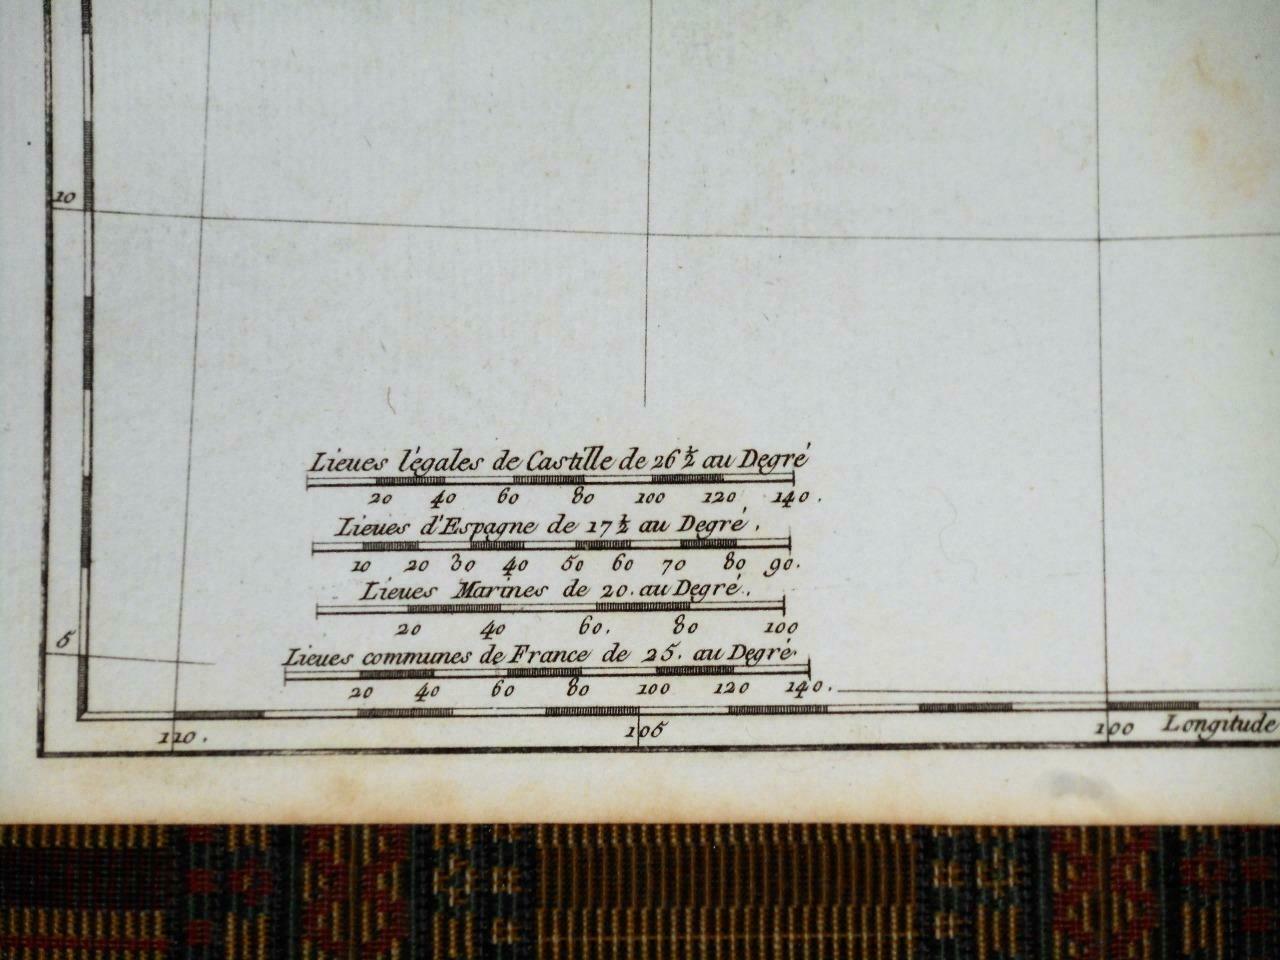 10
Lieues légales de Castille de 26½ au Degré
20 40 60 80 100 120 140.
Lieues d'Espagne de 17½ au Degré.
10 20 30 40 50 60 70 80 90.
Lieues Marines de 20. au Degré.
20 40 60. 80 100
5
Lieues communes de France de 25. au Degré.
20 40 60 80 100 120 140.
110. 105 100 Longitude